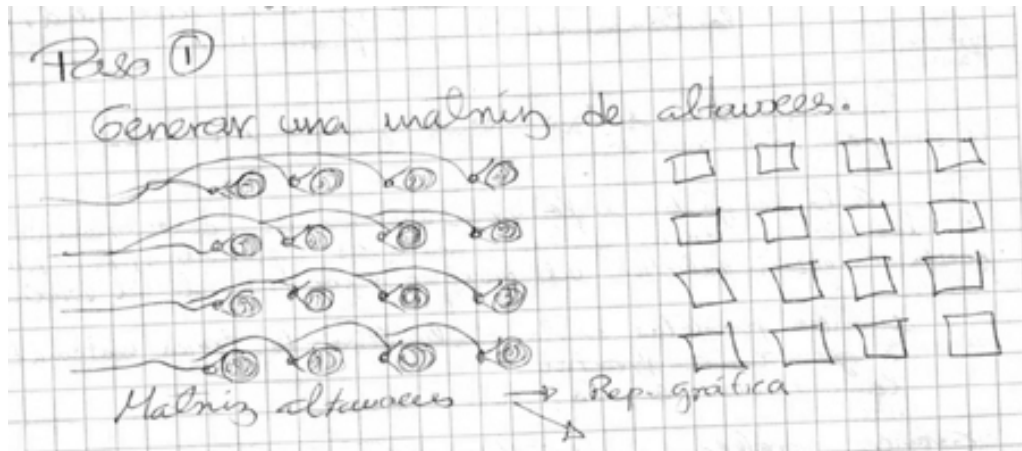 Paso ①
Generar una matriz de altavoces.
Matriz altavoces → Rep. gráfica